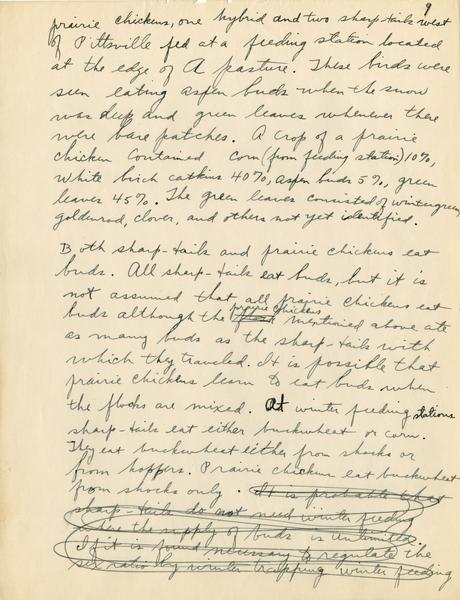 9
prairie chickens, one hybrid and two sharp-tails west
of Pittsville fed at a feeding station located
at the edge of A pasture. These birds were
seen eating aspen buds when the snow
was deep and green leaves whenever there
were bare patches. A crop of a prairie
chicken contained corn (from feeding station) 10%,
white birch catkins 40%, aspen buds 5%, green
leaves 45%. The green leaves consisted of wintergreen,
goldenrod, clover, and others not yet identified.
Both sharp-tails and prairie chickens eat
buds. All sharp-tails eat buds, but it is
not assumed that all prairie chickens eat
prairie chickens
buds although the mentioned above ate
as many buds as the sharp-tails with
which they traveled. It is possible that
prairie chickens learn to eat buds when
the flocks are mixed. At winter feeding stations
sharp-tails eat either buckwheat or corn.
They eat buckwheat either from shocks or
from hoppers. Prairie chickens eat buckwheat
from shocks only. It is probable that
sharp-tails do not need winter feeding
where the supply of buds is unlimited.
If it is found necessary to regulate the
sex ratio by winter trapping winter feeding